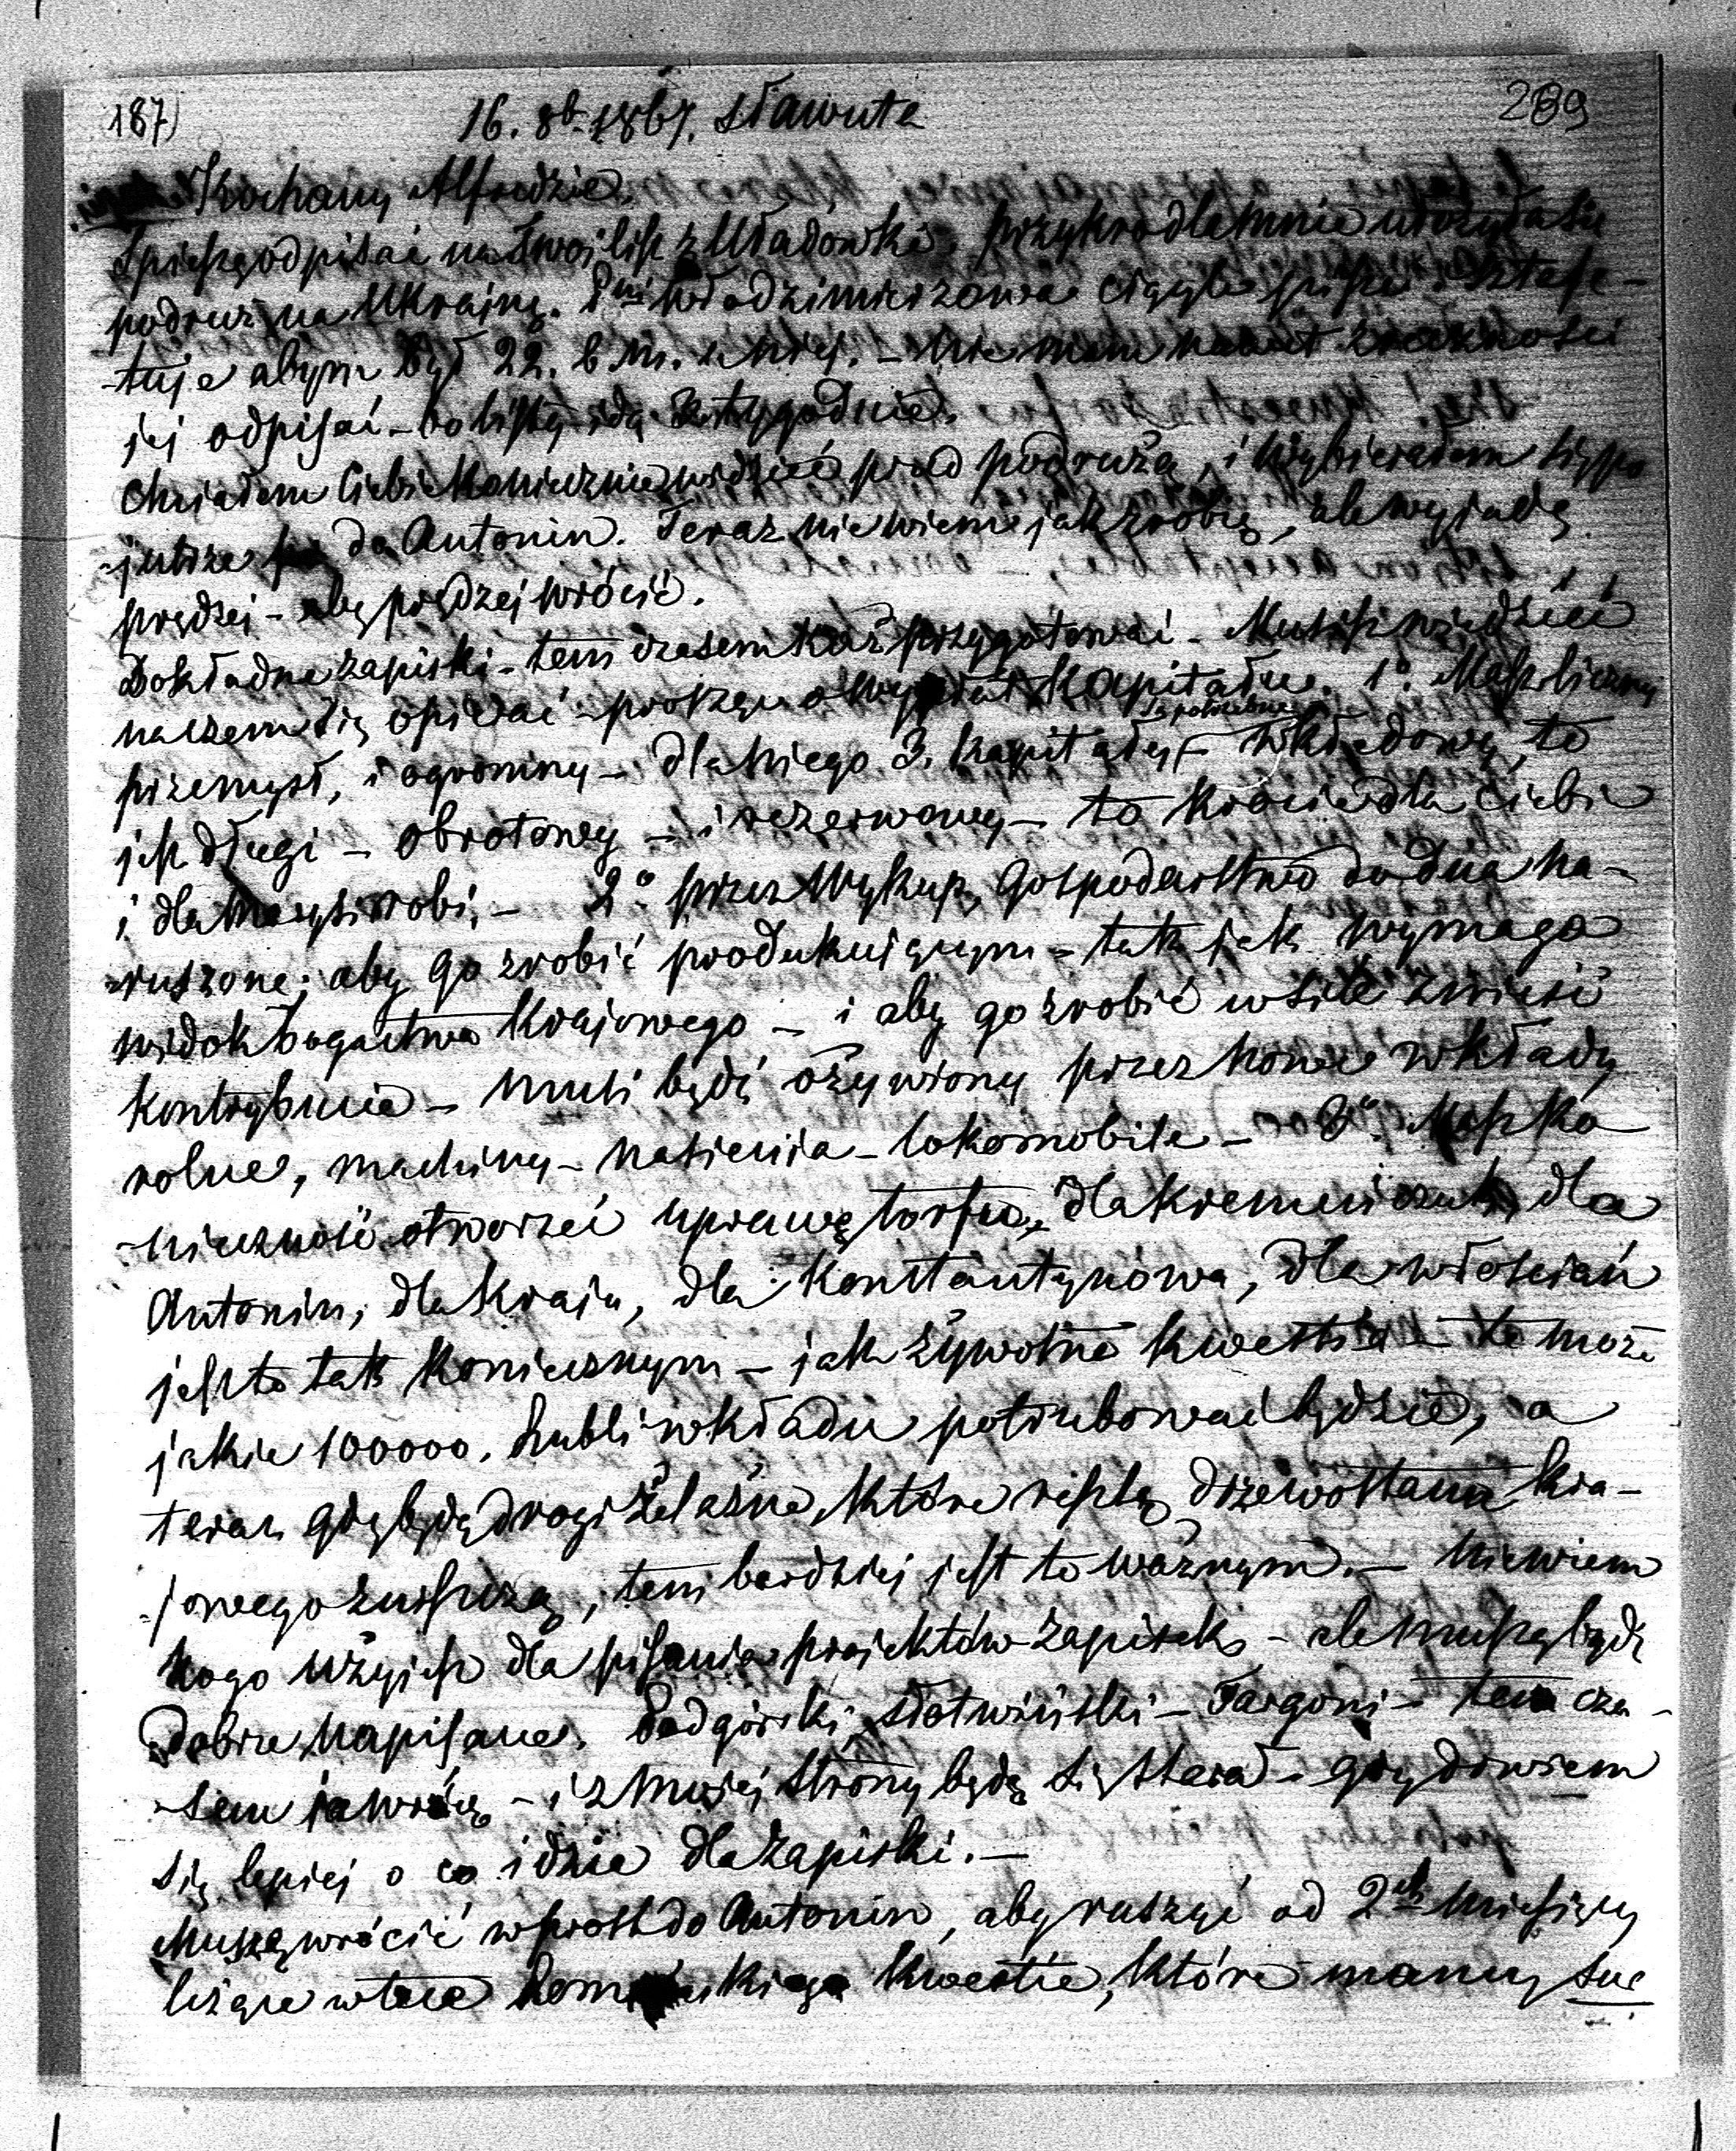 187)
16. 8b. 1867. Sławuta
289
Kochany Alfredzie,
Spieszę odpisać na Twój list z Uładówki. przykro dla mnie ułożyła się
podruż na Ukrainę. Pni Włodzimierzowa ciągle pisze i sztafe-
-tuje abym był 22. b. m. u niej. - nie mam nawet
jej odpisać - bo listy idą 2 tygodnie.
Chciałem Ciebie koniecznie widzieć przed podrużą, i wybierałem się po
jutrze do Antonin. Teraz nie wiem jak zrobię, ale wyjadę
prędzej - aby prędzej wrócić.
Dokładne zapiski - tem czasem każ przygotować - Musisz wiedzieć
na czem się opierać prosząc o kapitału. 1o. Masz liczny
są potrzebne
przemysł, i ogromny - dla niego 3. kapitały - wkładowy, to
jest długi - obrotowy - i rezerwowy - to krocie dla Ciebie
i dla Marysi robi, - 2o przez Wykup, Gospodarstwo do dna na-
-ruszone; aby go zrobić produkującym - tak jak wymaga
widok bogactwa krajowego - i aby go zrobić w sile znieść
kontrybucie - musi będź ożywiony przez nowe wkłady
rolne, machiny - nasienia - lokomobile - 3o. Masz ko
-nieczność otworzeć uprawę torfu, dla Kremenczuk, dla
Antonin, dla kraju, dla Konstantynowa, dla włościań
jest to tak koniecznym - jak żywotna kwestia - to może
jakie 100000. Rubli wkładu potrzebować będzie, a
teraz gdy będą drogi żelazne, które resztę drzewostanu kra-
-jowego zniszczą, tem bardziej jest to ważnym. - nie wiem
kogo użyjesz dla pisania projektów zapisek - ale muszą będź
dobrze napisane. Podgórski, Słotwiński - Targoni - tem cza-
-sem ja wrócę - i z mojej strony będę się starał - gdy dowiem
się lepiej o co idzie dla zapiski. -
Muszę wrócić wprost do Antonin, aby ruszyć od 2ch miesięcy
leżące w tece kwestie, które mamy sue